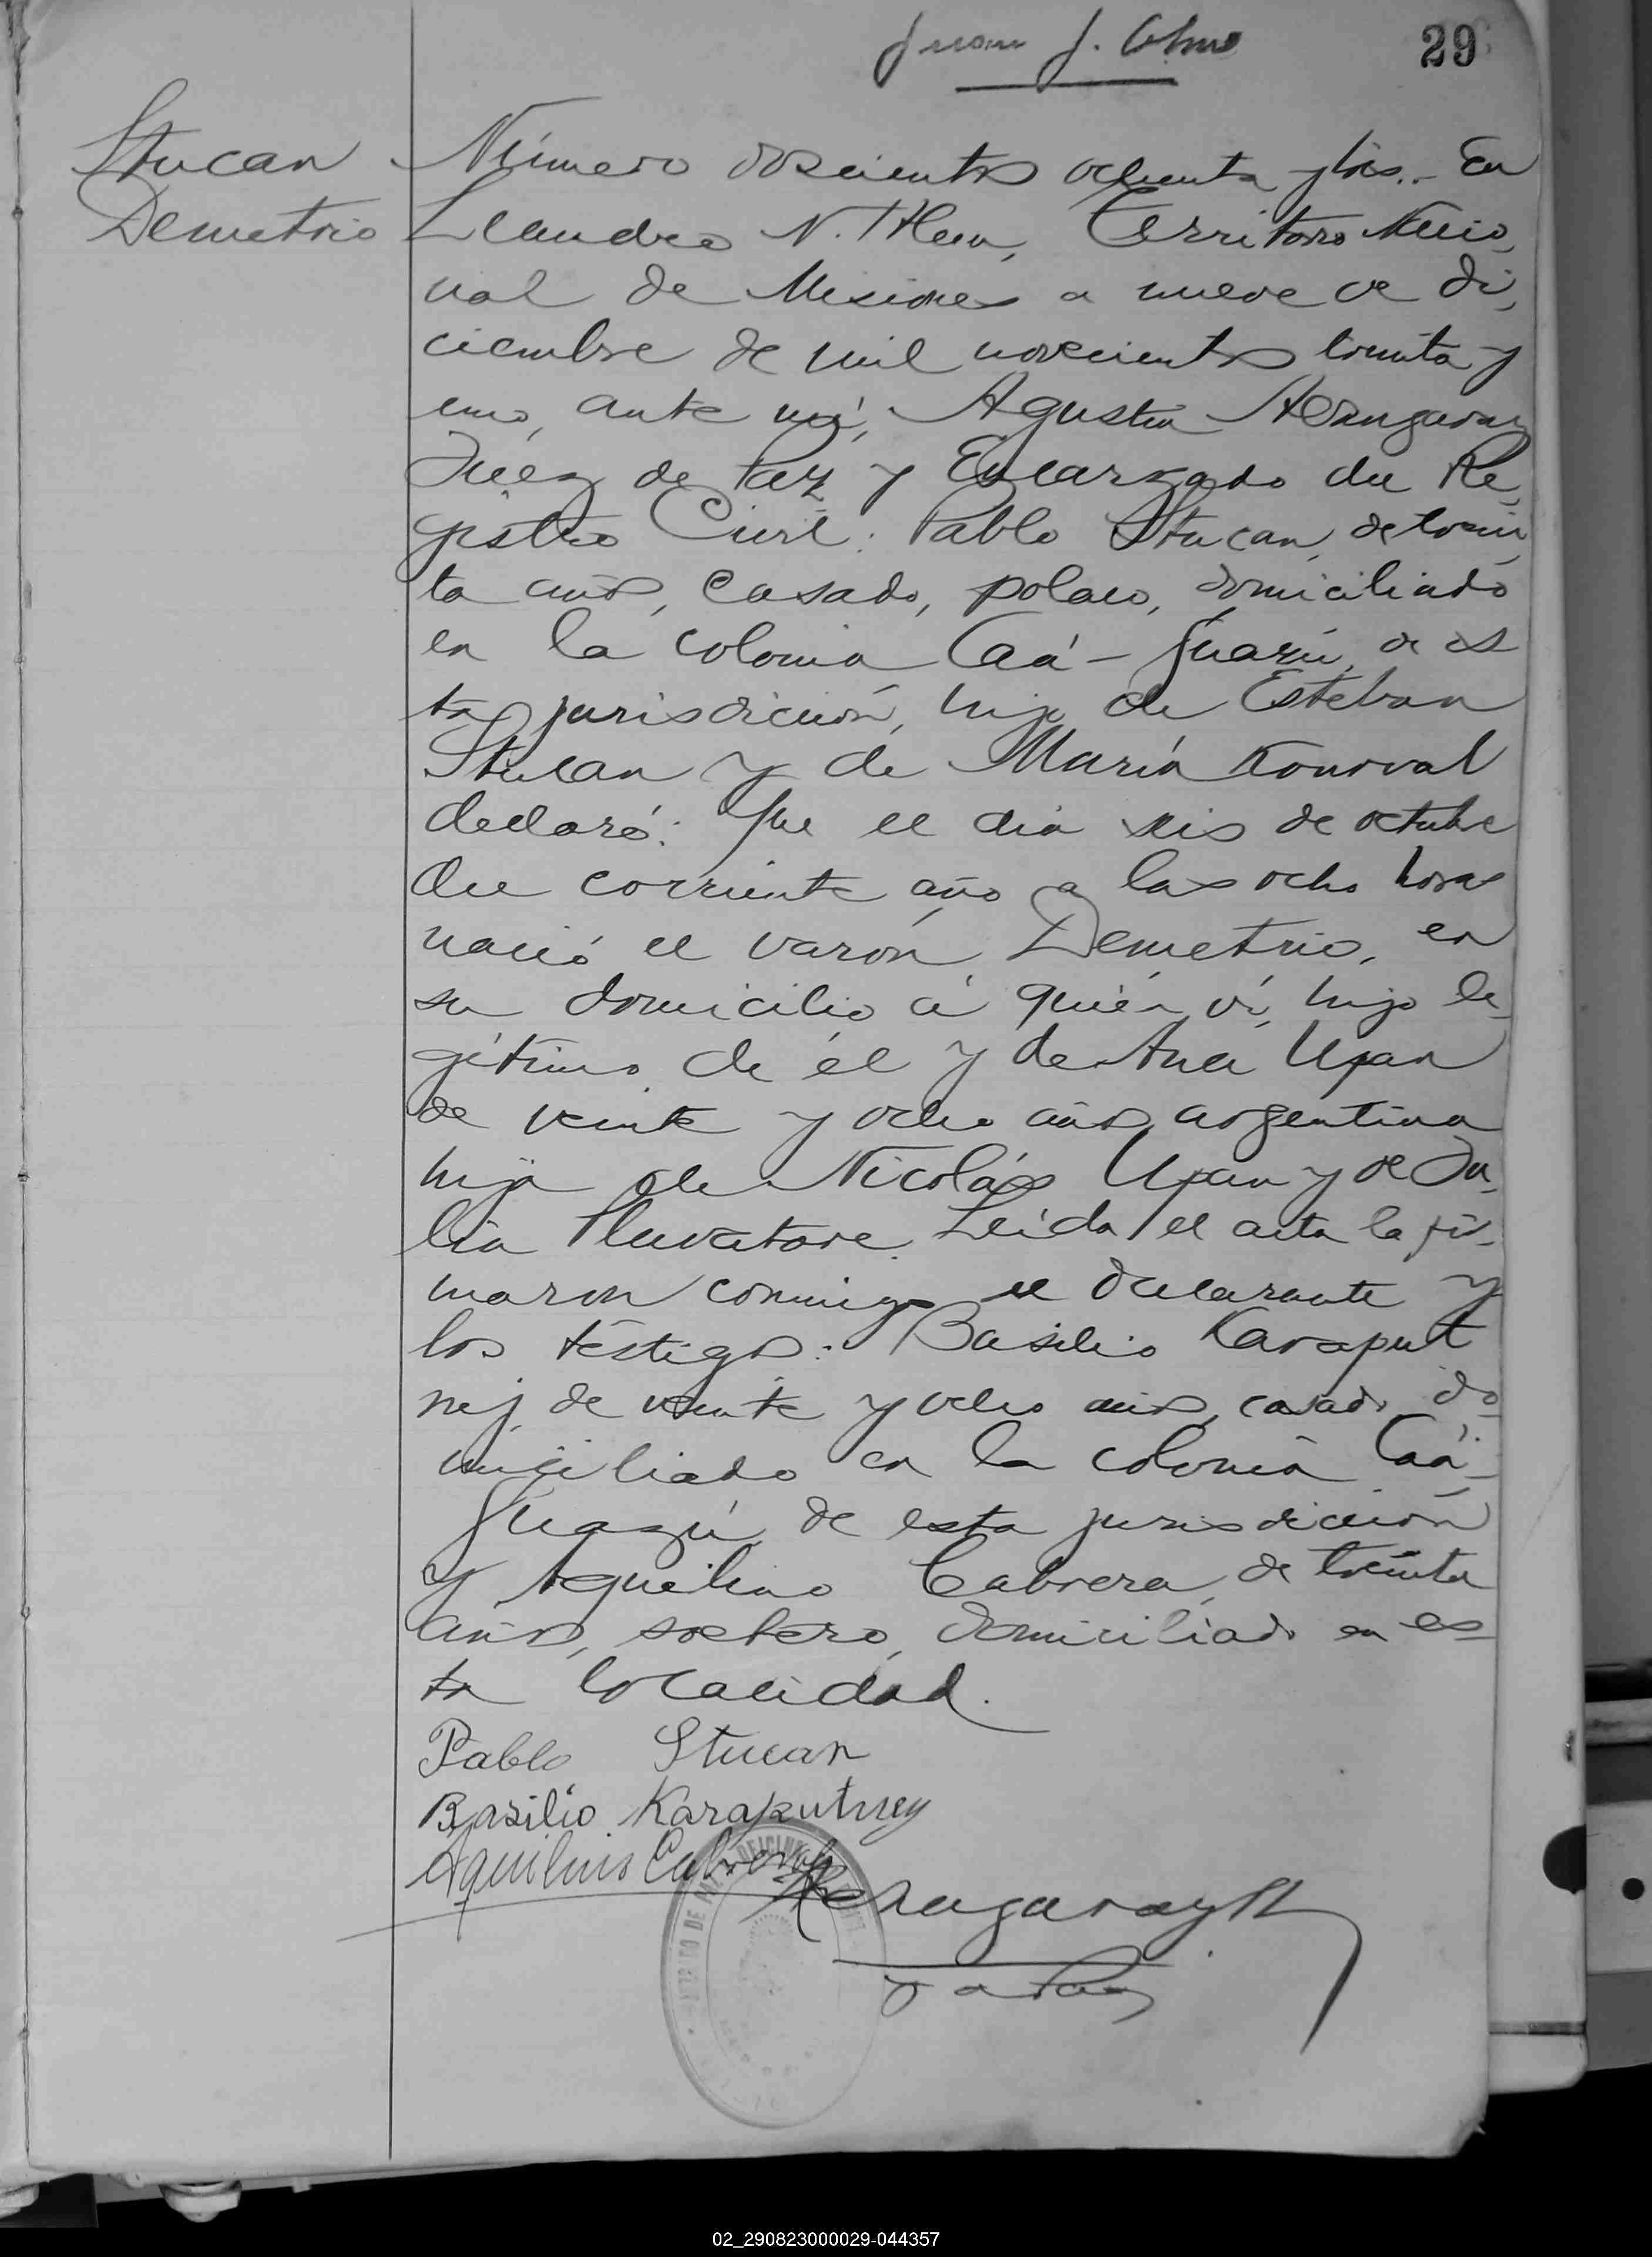 Juan J.
29
Stucan
Demetrio
Número doscientos ochenta y tres.- En
Leandro N. Alem, Territorio Nacio,
nal de Misiones a nueve de di,
ciembre de mil novecientos treinta y
uno, ante mí, Agustín Aranzgaray
Juez de Paz y Encargado del Re,
gistro Civil: Pablo Stucan, de trein,
ta años, casado, polaco, domiciliado
en la colonia Caá-Guazú, de es
ta jurisdicción, hijo de Esteban
Stucan y de María Konoval
declaró: Que el día seis de octubre
del corriente año a las ocho horas
nació el varón Demetrio, en
su domicilio a quién ví, hijo le-
gítimo de él y de Ana Upan
de veinte y ocho años, argentina
hija de Nicolás Upan y de Ju,
lia Leída el acta la fir-
maron conmigo el declarante y
los testigos: Basilio Karaput
nej de veinte y ocho años, casado, do
miciliado en la colonia Caá-
Guazú, de esta jurisdicción
y Aquilino Cabrera, de treinta
años, soltero, domiciliado en es-
ta localidad.
Pablo Stucan
Basilio Karaputney
Aquilino Cabrera
JUZGADO DE PAZ